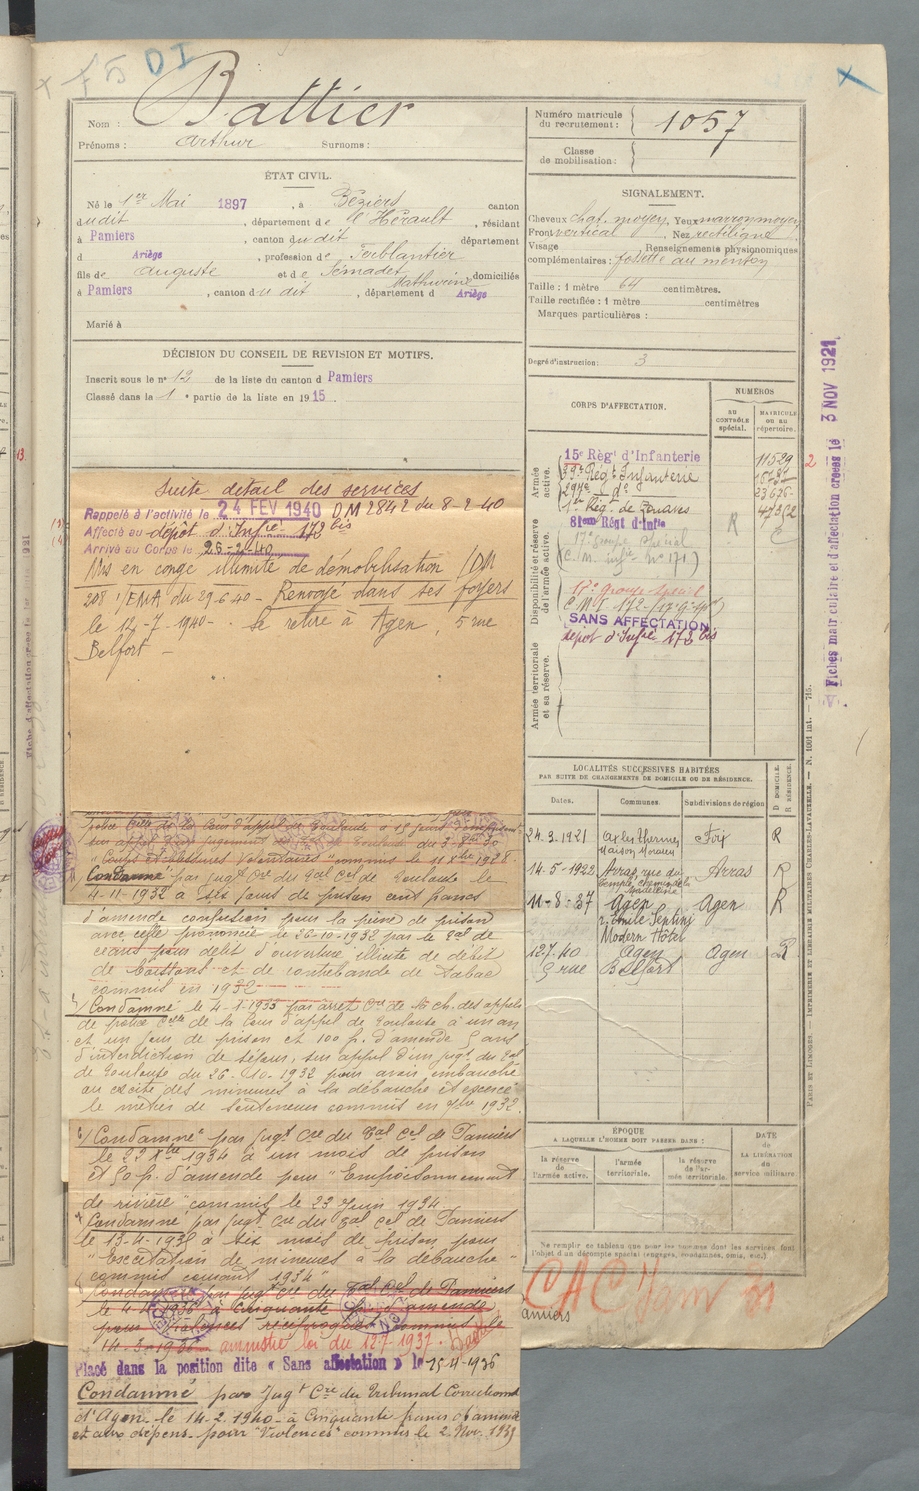 f 5 DI
Nom : Battier
Prénoms : Arthur Surnoms :
ÉTAT CIVIL.
Né le 1er Mai 1897, à Béziers canton
dudit, département de l'Hérault, résidant
à Pamiers, canton dudit département
d Ariège, profession de Ferblantier
fils de Auguste et de Semadet Mathurine domiciliés
à Pamiers, canton du dit, département d Ariège
Marié à
DÉCISION DU CONSEIL DE REVISION ET MOTIFS.
Inscrit sous le n° 12 de la liste du canton d Pamiers
Classé dans la 1e partie de la liste en 1915.
Suite detail des services
Rappelé à l'activité le 24 FEV 1940 DM 2842 du 8-2-40
Affecté au dépôt d'Infie 173 bis
Arrivé au Corps le 26-2-40
Mis en congé illimité de démobilisation /DM
208 1/EMA du 29.6.40 - Renvoyé dans ses foyers
le 12-7-1940 - Se retire à Agen, 5 rue
Belfort -
police de la Cour d'appel de Toulouse à 15 jours
"Coups et blessures volontaires" commis le 11 Xbre 1928.
Condamné par jugt Cre du Tal Cel de Toulouse le
4-11-1932 à dix jours de prison cent francs
d'amende confusion pour la peine de prison
avec celle prononcée le 26-10-1932 par le Tal de
céans pour délit d'ouverture illicite de débit
de boissons et de contrebande de tabac
commis en 1932
Condamné le 4-1-1933 par arrêt Cre de la ch. des appels
de police Celle de la Cour d'appel de Toulouse à un an
et un jour de prison et 100 f. d'amende 5 ans
d'interdiction de séjour, sur appel d'un jugt du Tal
de Toulouse du 26-10-1932 pour avoir embauché
ou excité des mineures à la débauche et exercé
le métier de souteneur commis en 7bre 1932.
6/ Condamné par jugt Cre du Tal Cel de Pamiers
le 22 Xbre 1934 à un mois de prison
et 50 f. d'amende pour "Empoisonnement
de rivière" commis le 23 Juin 1934
Condamné par jugt Cre du Tal Cel de Pamiers
le 13-4-1935 à six mois de prison pour
"Excitation de mineures à la débauche"
commis courant 1934"
Condamné par jugt Cre du Tal Cel de Pamiers
le 4-4-1936 à Cinquante f. d'amende
pour Violences réciproques commis le
14-3-1936 amnistié loi du 12-7-1937.
Placé dans la position dite « Sans affectation » le 15-4-1936
Condamné par Jugt Cre du Tribunal Correctionnel
d'Agen le 14-2-1940 à Cinquante francs d'amende
et aux dépens pour "Violences" commis le 2 Nov. 1939
Numéro matricule du recrutement : 1057
Classe de mobilisation :
SIGNALEMENT.
Cheveux chat. moyen, Yeux marron moyen
Front vertical, Nez rectiligne
Visage, Renseignements physionomiques
complémentaires : fossette au menton
Taille : 1 mètre 64 centimètres.
Taille rectifiée : 1 mètre centimètres
Marques particulières :
Degré d'instruction : 3
CORPS D'AFFECTATION.
NUMÉROS
AU CONTRÔLE spécial.
MATRICULE ou au répertoire.
Armée active.
15e Régt d'Infanterie 11529
Régt Infanterie
1er Régt de Zouaves
81eme Régt d'Infie
Disponibilité et réserve de l'armée active.
17e groupe spécial
(C. M. infie N° 171)
17e groupe spécial
SANS AFFECTATION
dépôt d'Infie 173 bis
Armée territoriale et sa réserve.
LOCALITÉS SUCCESSIVES HABITÉES
PAR SUITE DE CHANGEMENTS DE DOMICILE OU DE RÉSIDENCE.
Dates. Communes. Subdivisions de région D. DOMICILE. R. RÉSIDENCE.
24.3.1921 Ax les Thermes Foix R
14-5-1922 Arras, rue du Arras R
11-8-37 Agen Agen R
r. Emile Sentini
Modern Hôtel
12.7.40 Agen Agen R
5 rue Belfort
ÉPOQUE
A LAQUELLE L'HOMME DOIT PASSER DANS :
la réserve de l'armée active. l'armée territoriale. la réserve de l'armée territoriale.
DATE de LA LIBÉRATION du service militaire
Ne remplir ce tableau que pour les hommes dont les services font
l'objet d'un décompte spécial (engagés, condamnés, omis, etc.)
CAC
amiers
Fiches matriculaire et d'affectation créées le 3 NOV 1921
PARIS ET LIMOGES. — IMPRIMERIE ET LIBRAIRIE MILITAIRES CHARLES-LAVAUZELLE. — N. 1001 int. — 715.